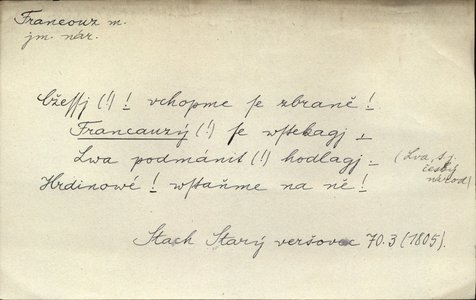 Francouz m.
jm. nár.
Čžeſſj (!) ! vchopme ſe zbraně !
Francauzý (!) ſe wſtekagj –
Lwa podmánit (!) hodlagj – (Lva, t. j. český národ)
Hrdinowé ! wſtaňme na ně !
Stach Starý veršovec 70.3 (1805).